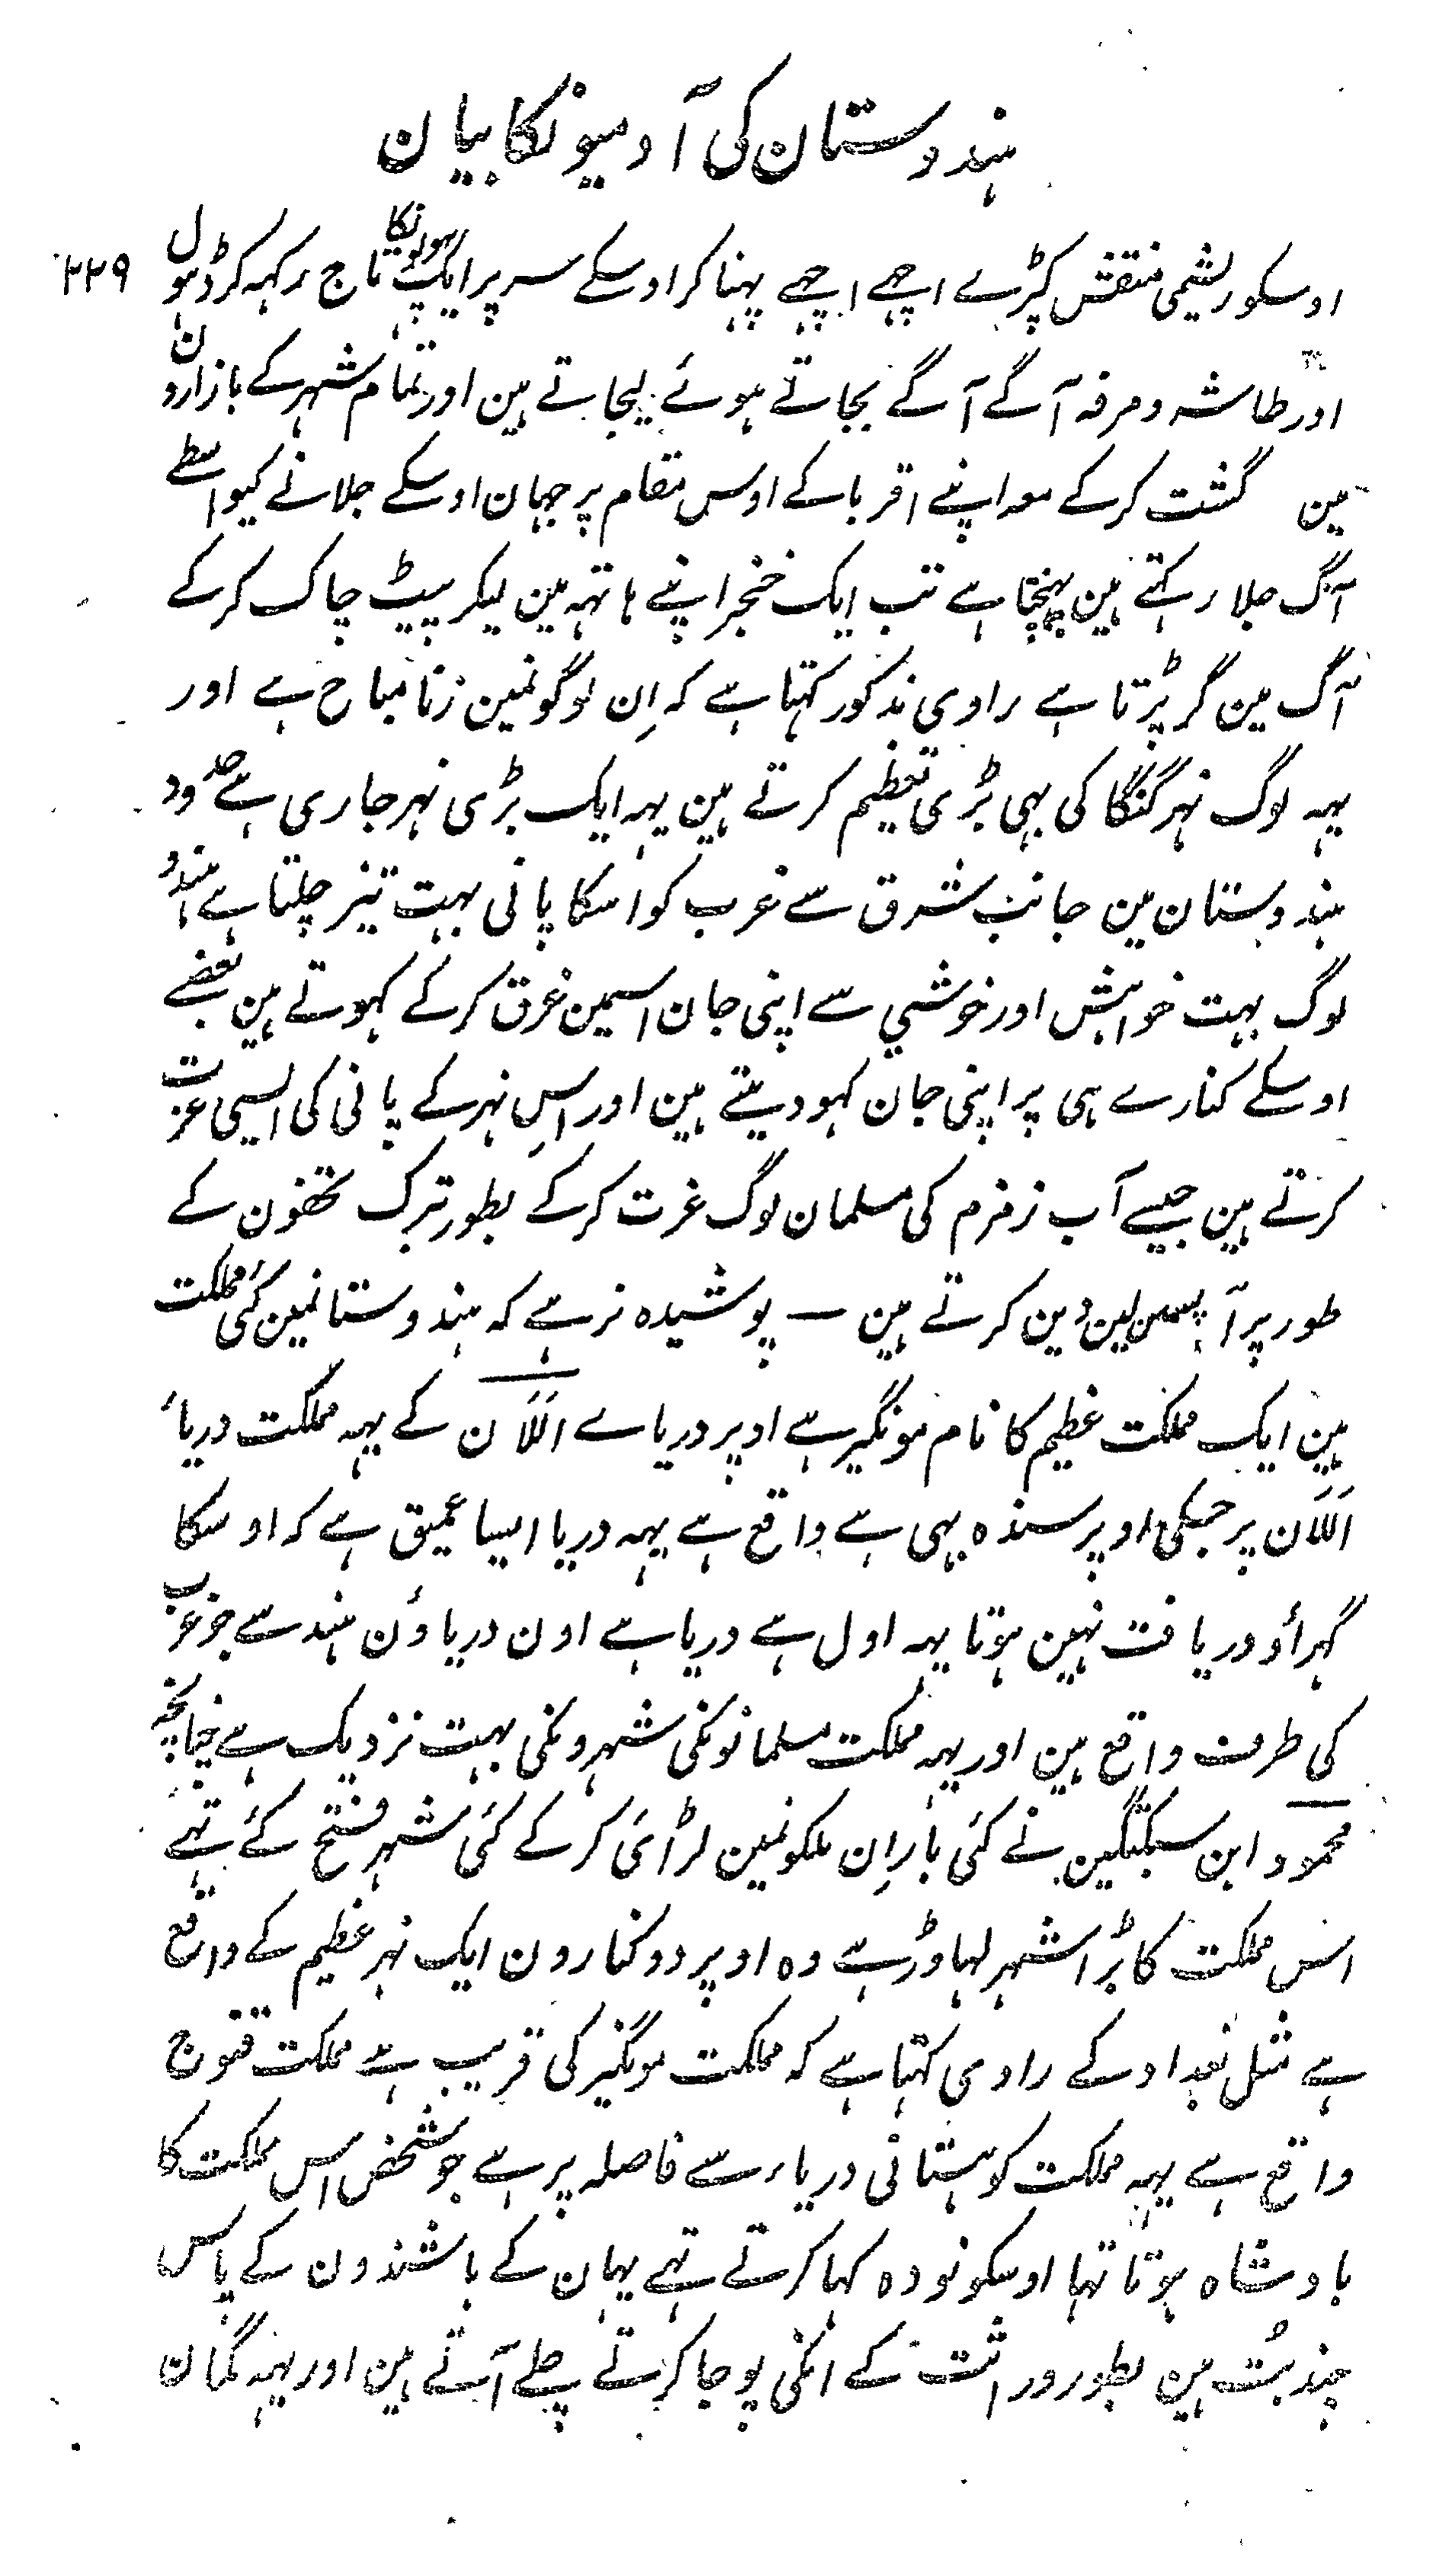 ہندوستان کی آدمیونکا بیان
۲۲۹
اوسکو ریشمی منقش کپڑے اچھے اچھے پہنا کر اوسکے سر پر ایک پہولونکا تاج رکہہ کر ڈہول
اور طاشہ و مرفہ آگے آگے بجاتے ہوئے لیجاتے ہین اور تمام شہر کے بازارون
مین گشت کرکے معہ اپنے اقربا کے اوس مقام پر جہان اوسکے جلانے کیواسطے
آگ جلا رکہتے ہین پہنچتا ہے تب ایک خنجر اپنے ہاتہہ مین لیکر پیٹ چاک کرکے
آگ مین گر پڑتا ہے راوی مذکور کہتا ہے کہ اِن لوگونمین زنا مباح ہے اور
یہہ لوگ نہر گنگا کی بہی بڑی تعظیم کرتے ہین یہہ ایک بڑی نہر جاری ہے حدود
ہندوستان مین جانب شرق سے غرب کو اسکا پانی بہت تیز چلتا ہے ہندو
لوگ بہت خواہش اور خوشی سے اپنی جان اسمین غرق کرکے کہوتے ہین بعضے
اوسکے کنارے ہی پر اپنی جان کہو دیتے ہین اور اس نہر کے پانی کی ایسی عزت
کرتے ہین جیسے آب زمزم کی مسلمان لوگ عزت کرکے بطور تبرک تحفون کے
طور پر آپسمین لین دین کرتے ہین — پوشیدہ نرہے کہ ہندوستانمین کئی مملکت
ہین ایک مملکت عظیم کا نام مونگیر ہے اوپر دریاے اللاَن کے یہہ مملکت دریائ
اللاَن پر جسکی اوپر سندہ بہی ہے واقع ہے یہہ دریا ایسا عمیق ہے کہ اوسکا
گہراؤ دریافت نہین ہوتا یہہ اول ہے دریا ہے اون دریاؤن ہند سے جو غرب
کی طرف واقع ہین اور یہہ مملکت مسلمانونکی شہرونکی بہت نزدیک ہے چنانچہ
محمود ابن سبکتگین نے کئی بار اِن ملکونمین لڑائی کرکے کئی شہر فتح کئے تہے
اس مملکت کا بڑا شہر لہاوڑ ہے وہ اوپر دو کنارون ایک نہر عظیم کے واقع
ہے مثل بغداد کے راوی کہتا ہے کہ مملکت مونگیر کی قریب ہے مملکت قنوج
واقع ہے یہہ مملکت کوہستانی دریاء سے فاصلہ پر ہے جو شخص اس مملکت کا
بادشاہ ہوتا تہا اوسکو نودہ کہا کرتے تہے یہان کے باشندون کے پاس
چند بُت ہین بطور وراثت کے انکی پوجا کرتے چلے آتے ہین اور یہہ گمان